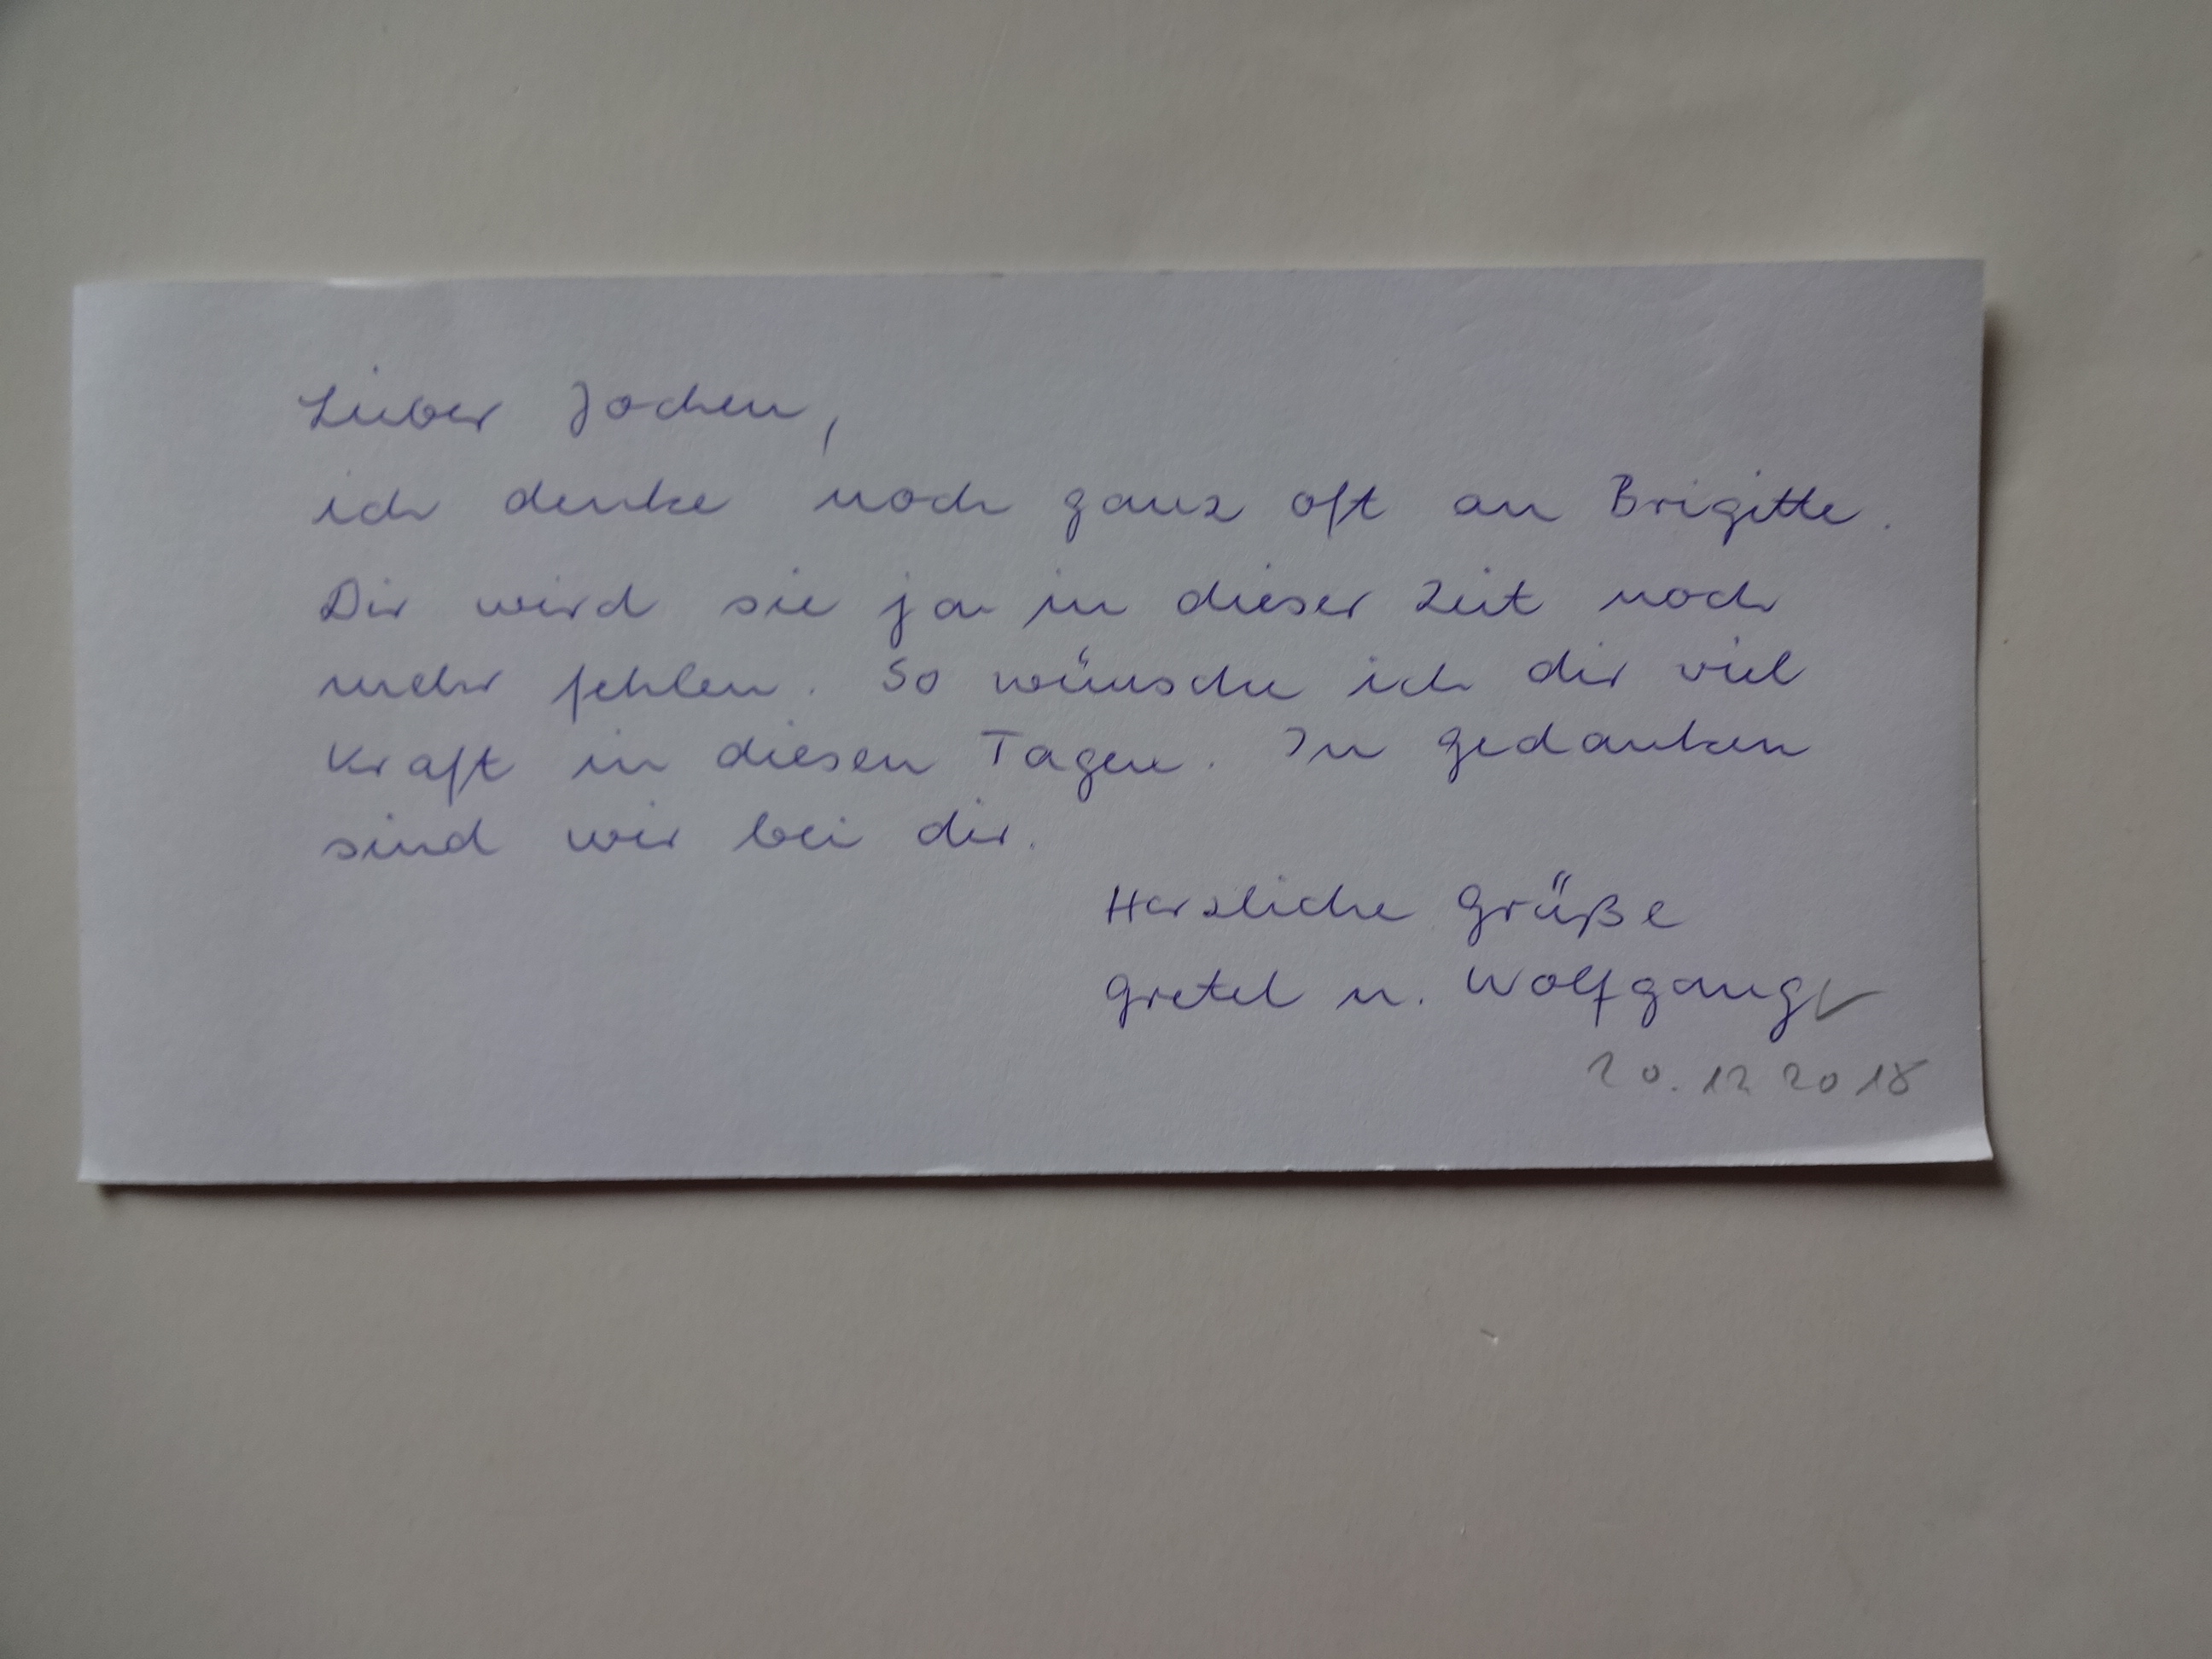 Lieber Jochen,
ich denke noch ganz oft an Brigitte.
Dir wird sie ja in dieser Zeit noch
mehr fehlen. So wünsche ich dir viel
Kraft in diesen Tagen. In Gedanken
sind wir bei dir.
Herzliche Grüße
Gretel u. Wolfgang
20.12 2018